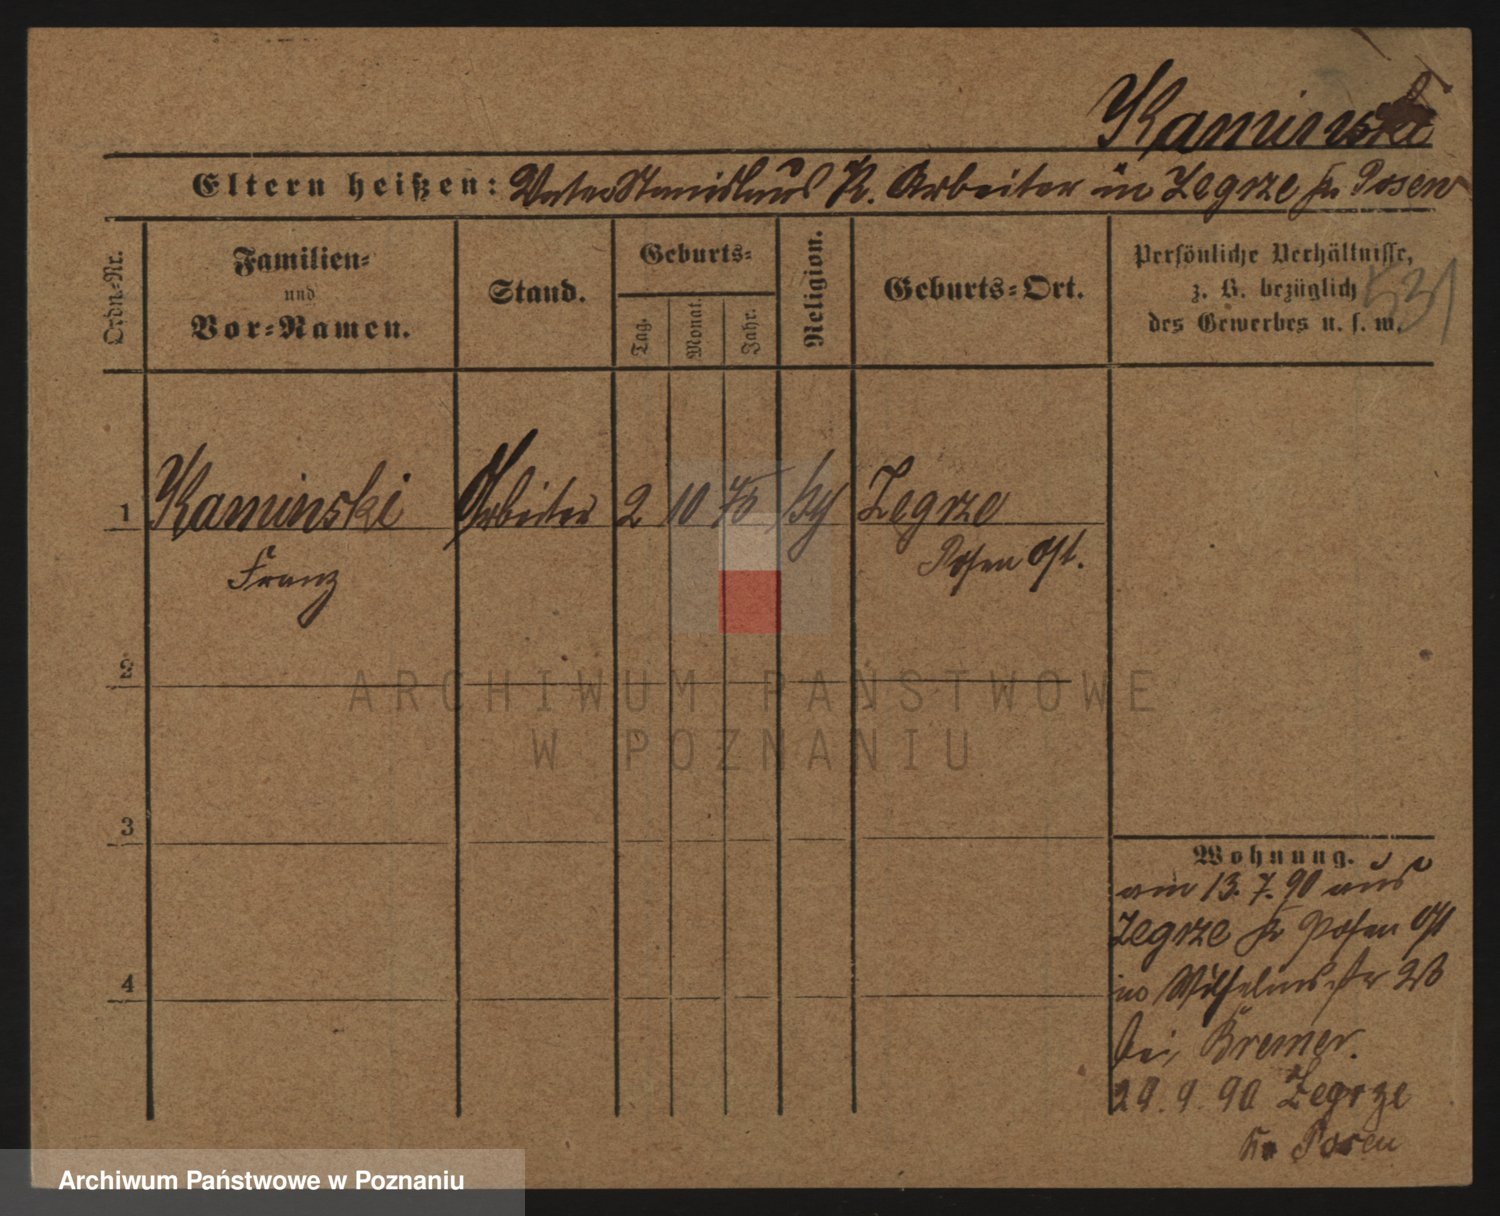 Kaminski
Eltern heißen: Vater Stanislaus K. Arbeiter in Zegrze Kr. Posen
Ordn.-Nr.
Familien-
und
Vor-Namen.
Stand.
Geburts-
Tag.
Monat.
Jahr.
Religion.
Geburts-Ort.
Persönliche Verhältnisse,
z. B. bezüglich
des Gewerbes u. s. w.
531
1 Kaminski Arbeiter 2 10 75 kth Zegrze
Franz Posen Ost.
2
3
4
Wohnung.
am 13.7.90 aus
Zegrze Kr Posen Ost
in Wilhelmstr 28
bei Bremer.
29.9.90 Zegrze
Kr Posen
ARCHIWUM PAŃSTWOWE
W POZNANIU
Archiwum Państwowe w Poznaniu